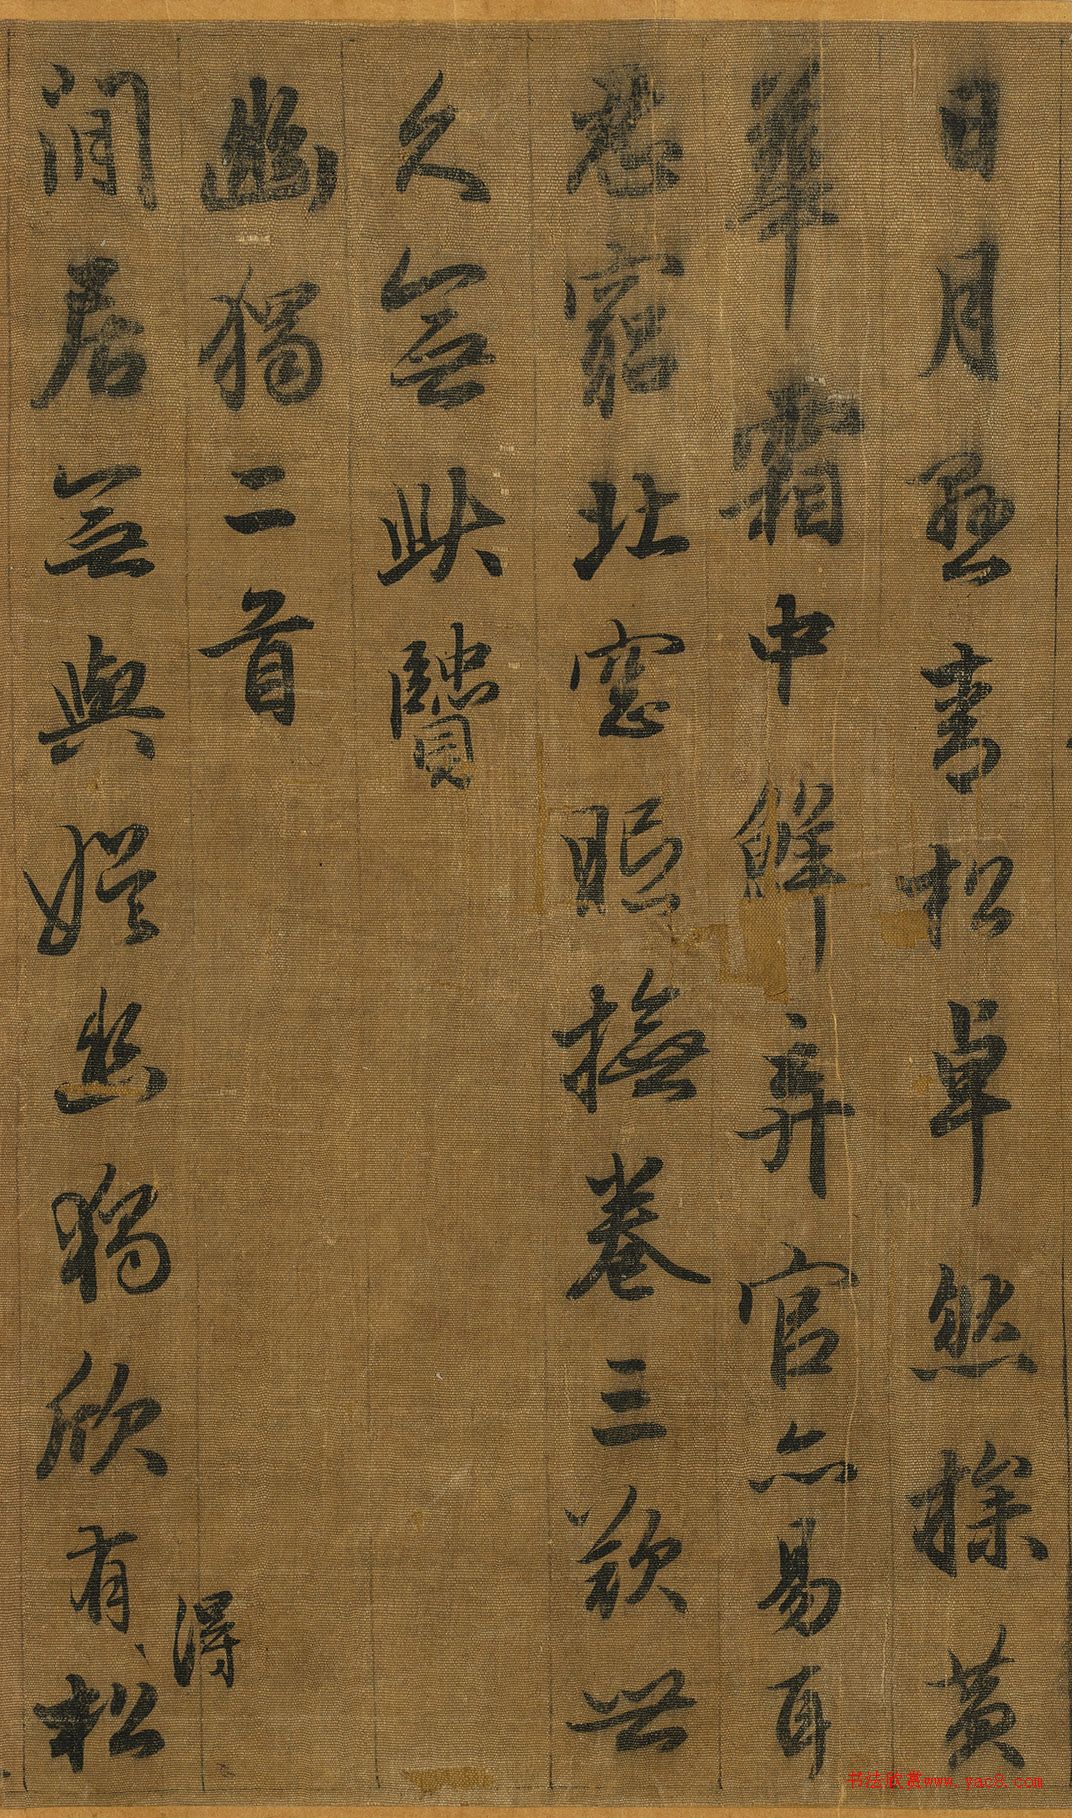 日月懸青松卓然採黃
華霜中鮮弃官亦易耳
忍窮北窓眠撫卷三歎世
久無此賢
幽獨二首
閒居無與娛幽獨欣有松
得
书法欣赏www.yac8.com